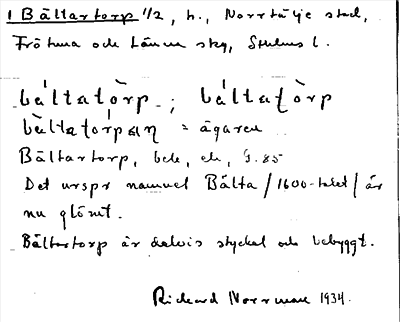 1 Bältartorp 1/2, h., Norrtälje stad,
Frötuna och Länna skg, Sthlms l.
báltatòrp ; báltatòrp
bàltatórpaɳ = ägaren
Bältartorp, beb., ek, J. 85
Det urspr namnet Bälta / 1600-talet / är
nu glömt.
Bältartorp är delvis styckat och bebyggt.
Rickard Norrman 1934.